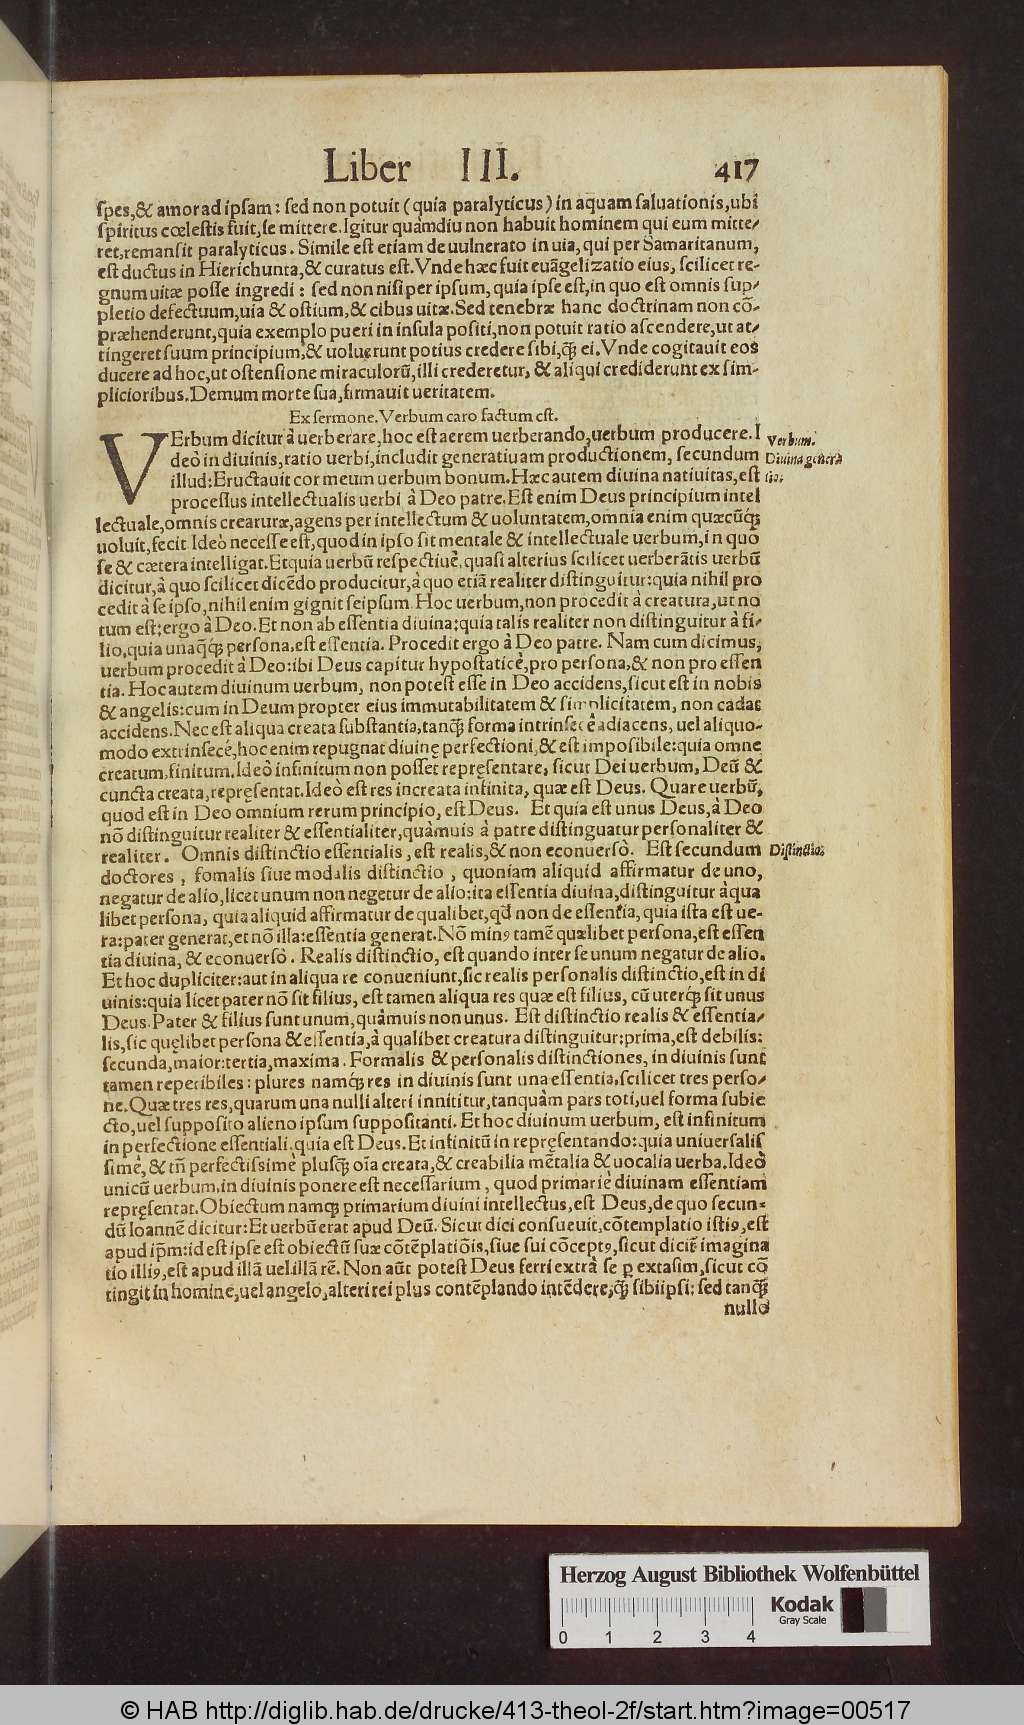 Liber III. 417
spes,& amor ad ipsam: sed non potuit (quia paralyticus) in aquam saluationis,ubi
spiritus cœlestis fuit,se mittere.Igitur quàmdiu non habuit hominem qui eum mitte/
ret,remansit paralyticus. Simile est etiam de uulnerato in uia, qui per Samaritanum,
est ductus in Hierichunta,& curatus est.Vnde hæc fuit euāgelizatio eius, scilicet re-
gnum uitæ posse ingredi: sed non nisi per ipsum, quia ipse est, in quo est omnis sup/
pletio defectuum,uia & ostium,& cibus uitæ. Sed tenebræ hanc doctrinam non cō-
præhenderunt,quia exemplo pueri in insula positi,non potuit ratio ascendere,ut at/
tingeret suum principium,& uoluerunt potius credere sibi,q̃ ei.Vnde cogitauit eos
ducere ad hoc,ut ostensione miraculorũ,illi crederetur, & aliqui crediderunt ex sim-
plicioribus.Demum morte sua,firmauit ueritatem.
Ex sermone.Verbum caro factum est.
VErbum dicitur à uerberare,hoc est aerem uerberando,uerbum producere.I
deò in diuinis,ratio uerbi,includit generatiuam productionem, secundum
illud:Eructauit cor meum uerbum bonum.Hæc autem diuina natiuitas,est
processus intellectualis uerbi à Deo patre.Est enim Deus principium intel
Verbum.
Diuina genera
tio.
lectuale,omnis creaturæ,agens per intellectum & uoluntatem,omnia enim quæcũq;
uoluit,fecit Ideò necesse est,quod in ipso sit mentale & intellectuale uerbum,in quo
se & cætera intelligat.Et quia uerbũ respectiuè,quasi alterius scilicet uerberātis uerbũ
dicitur,à quo scilicet dicẽdo producitur,à quo etiā realiter distinguitur:quia nihil pro
cedit à se ipso,nihil enim gignit seipsum Hoc uerbum,non procedit à creatura,ut no
tum est:ergo à Deo.Et non ab essentia diuina:quia talis realiter non distinguitur à fi/
lio,quia unaq̃q; persona,est essentia. Procedit ergo à Deo patre. Nam cum dicimus,
uerbum procedit à Deo:ibi Deus capitur hypostaticè,pro persona,& non pro essen
tia. Hoc autem diuinum uerbum, non potest esse in Deo accidens,sicut est in nobis
& angelis:cum in Deum propter eius immutabilitatem & simplicitatem, non cadat
accidens.Nec est aliqua creata substantia,tanq̃ forma intrinsecè adiacens,uel aliquo-
modo extrinsecè,hoc enim repugnat diuinę perfectioni,& est imposibile:quia omne
creatum,finitum.Ideò infinitum non posset repręsentare, sicut Dei uerbum, Deũ &
cuncta creata,repręsentat.Ideò est res increata infinita, quæ est Deus. Quare uerbũ,
quod est in Deo omnium rerum principio, est Deus. Et quia est unus Deus,à Deo
nō distinguitur realiter & essentialiter,quàmuis à patre distinguatur personaliter &
realiter. Omnis distinctio essentialis, est realis,& non econuersò. Est secundum
Distinctio.
doctores, fomalis siue modalis distinctio, quoniam aliquid affirmatur de uno,
negatur de alio,licet unum non negetur de alio:ita essentia diuina,distinguitur à qua
libet persona, quia aliquid affirmatur de qualibet,qđ non de essentia, quia ista est ue-
ra:pater generat,et nō illa:essentia generat.Nō minꝰ tamẽ quælibet persona,est essen
tia diuina, & econuersò. Realis distinctio, est quando inter se unum negatur de alio.
Et hoc dupliciter:aut in aliqua re conueniunt,sic realis personalis distinctio,est in di
uinis:quia licet pater nō sit filius, est tamen aliqua res quæ est filius, cũ uterq; sit unus
Deus.Pater & filius sunt unum,quàmuis non unus. Est distinctio realis & essentia/
lis,sic quęlibet persona & essentia,à qualibet creatura distinguitur:prima,est debilis:
secunda,maior:tertia,maxima. Formalis & personalis distinctiones, in diuinis sunt
tamen reperibiles: plures namq; res in diuinis sunt una essentia,scilicet tres perso/
nę.Quæ tres res,quarum una nulli alteri innititur,tanquàm pars toti,uel forma subie
cto,uel supposito alieno ipsum suppositanti. Et hoc diuinum uerbum, est infinitum
in perfectione essentiali,quia est Deus.Et infinitũ in repręsentando:quia uniuersalis
simè, & tñ perfectissimè plusq̃ oīa creata,& creabilia mẽtalia & uocalia uerba.Ideò
unicũ uerbum,in diuinis ponere est necessarium, quod primariè diuinam essentiam
repręsentat.Obiectum namq; primarium diuini intellectus,est Deus,de quo secun-
dũ Ioannẽ dicitur:Et uerbũ erat apud Deũ. Sicut dici consueuit,cōtemplatio istiꝰ,est
apud ip̄m:id est ipse est obiectũ suæ cōtẽplatiōis,siue sui cōceptꝰ,sicut dicit̃ imagina
tio illiꝰ,est apud illā uel illā rẽ. Non aũt potest Deus ferri extrà se ꝑ extasim,sicut cō
tingit in homine,uel angelo,alteri rei plus contẽplando intẽdere,q̃ sibiipsi: sed tanq̃
nullo
Herzog August Bibliothek Wolfenbüttel
0 1 2 3 4
Kodak
Gray Scale
© HAB http://diglib.hab.de/drucke/413-theol-2f/start.htm?image=00517